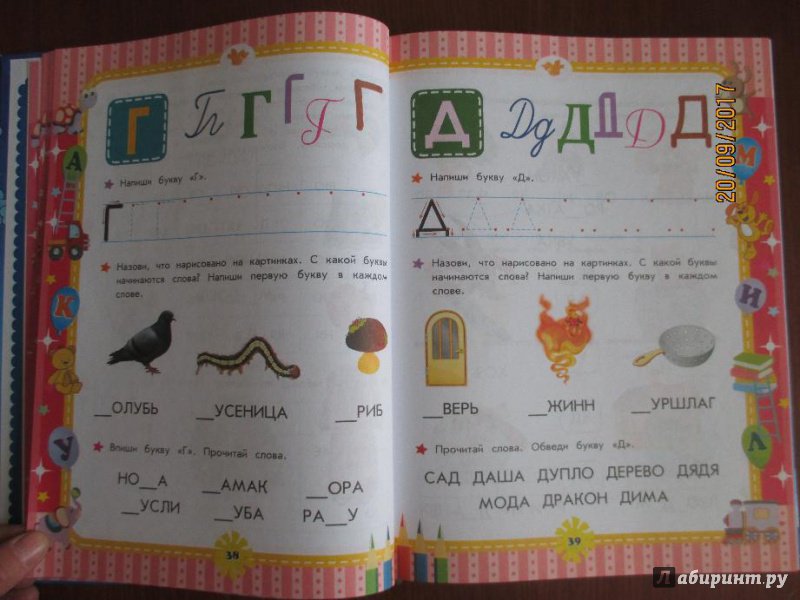 Г Гг Г Г Г Г
Напиши букву «Г».
Г
Назови, что нарисовано на картинках. С какой буквы
начинаются слова? Напиши первую букву в каждом
слове.
__ОЛУБЬ __УСЕНИЦА __РИБ
Впиши букву «Г». Прочитай слова.
НО__А __АМАК __ОРА
__УСЛИ __УБА РА__У
38
А
К
У
Д Дд Д Д Д Д
Напиши букву «Д».
Д Д Д
Назови, что нарисовано на картинках. С какой буквы
начинаются слова? Напиши первую букву в каждом
слове.
__ВЕРЬ __ЖИНН __УРШЛАГ
Прочитай слова. Обведи букву «Д».
САД ДАША ДУПЛО ДЕРЕВО ДЯДЯ
МОДА ДРАКОН ДИМА
39
М
И
Л
20/09/2017
Лабиринт.ру